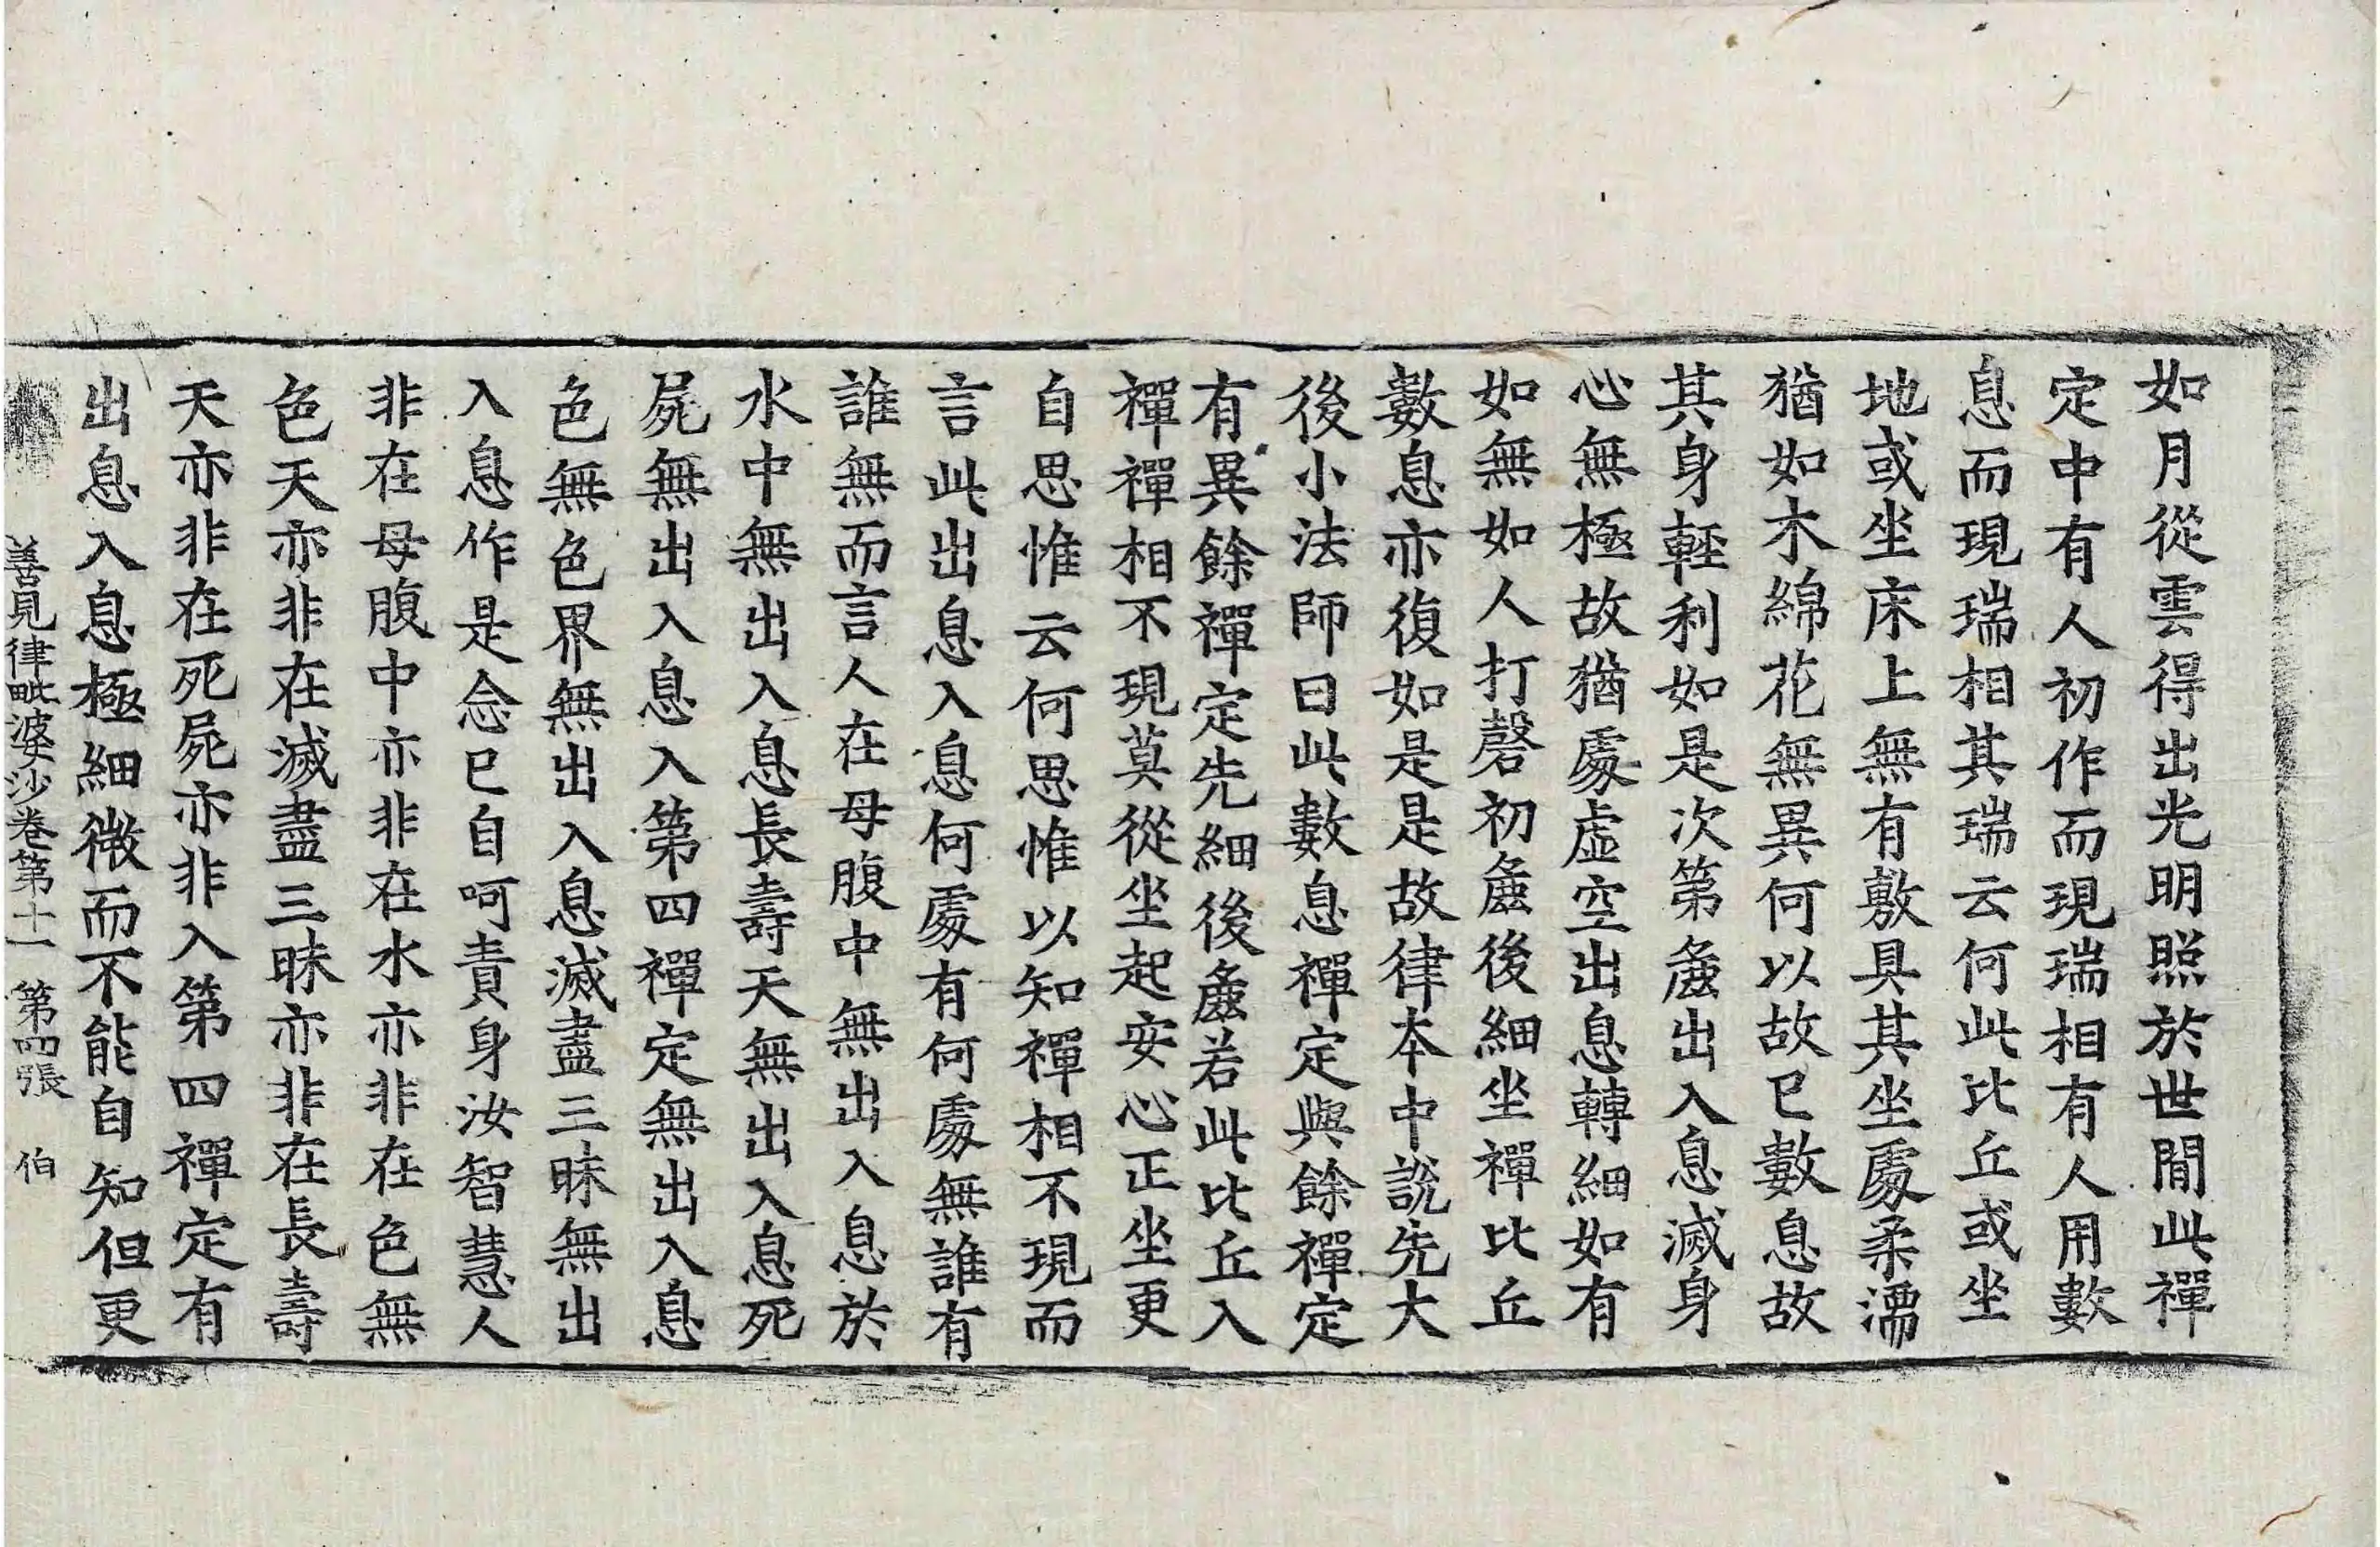 如月從雲得出光明照於世間此禪
定中有人初作而現瑞相有人用數
息而現瑞相其瑞云何此比丘或坐
地或坐床上無有敷具其坐處柔濡
猶如木綿花無異何以故已數息故
其身輕利如是次第麁出入息滅身
心無極故猶處虛空出息轉細如有
如無如人打磬初麁後細坐禪比丘
數息亦復如是是故律本中說先大
後小法師曰此數息禪定與餘禪定
有異餘禪定先細後麁若此比丘入
禪禪相不現莫從坐起安心正坐更
自思惟云何思惟以知禪相不現而
言此出息入息何處有何處無誰有
誰無而言人在母腹中無出入息於
水中無出入息長壽天無出入息死
屍無出入息入第四禪定無出入息
色無色界無出入息滅盡三昧無出
入息作是念已自呵責身汝智慧人
非在母腹中亦非在水亦非在色無
色天亦非在滅盡三昧亦非在長壽
天亦非在死屍亦非入第四禪定有
出息入息極細微而不能自知但更
善見律毗婆沙卷第十一 第四張 伯